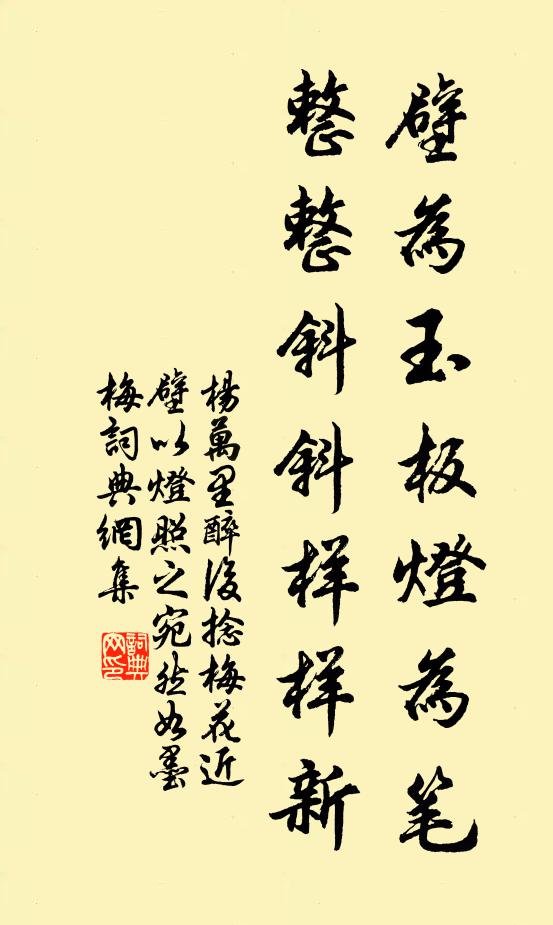 壁為玉板燈為笔
整整斜斜样样新
楊萬里醉後捻梅花近
壁以燈照之宛然如墨
梅詞典網集
詞典网印